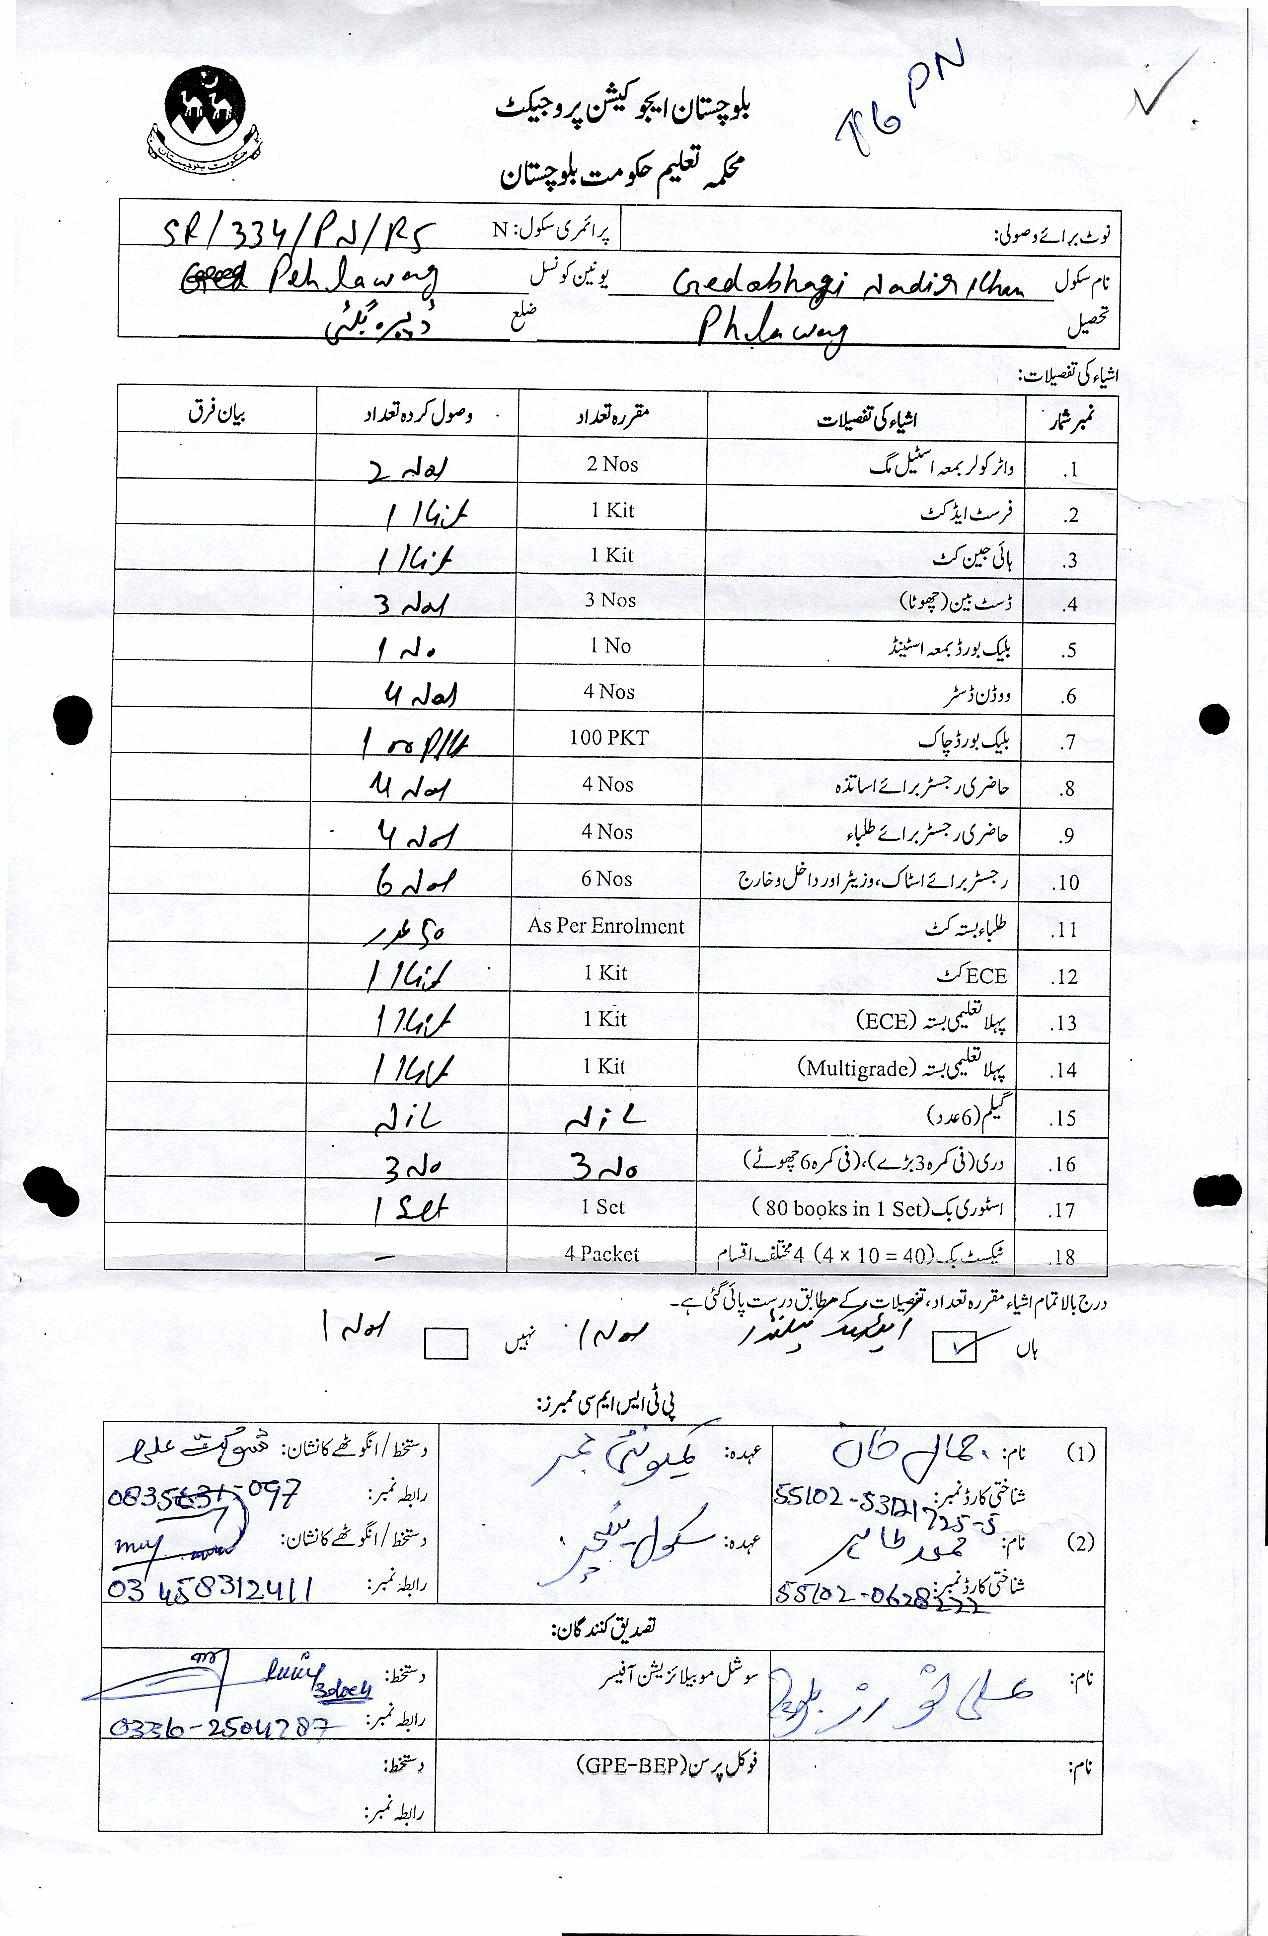 PN
بلوچستان ایجوکیشن پروجیکٹ
محکمہ تعلیم حکومت بلوچستان
نوٹ برائے وصولی: پرائمری سکول: N SR/334/PN/RS
نام سکول Gedabhagi Nadir Khan یونین کونسل Pehlawag
تحصیل Philawag ضلع ڈیرہ بگٹی
اشیاء کی تفصیلات:
نمبر شمار اشیاء کی تفصیلات مقررہ تعداد وصول کردہ تعداد بیان فرق
1. واٹر کولر بمعہ اسٹیل مگ 2 Nos 2 Nos
2. فرسٹ ایڈ کٹ 1 Kit 1 Kit
3. ہائی جین کٹ 1 Kit 1 Kit
4. ڈسٹ بین (چھوٹا) 3 Nos 3 Nos
5. بلیک بورڈ بمعہ اسٹینڈ 1 No 1 No
6. ووڈن ڈسٹر 4 Nos 4 Nos
7. بلیک بورڈ چاک 100 PKT 100 Pkt
8. حاضری رجسٹر برائے اساتذہ 4 Nos 4 Nos
9. حاضری رجسٹر برائے طلباء 4 Nos 4 Nos
10. رجسٹر برائے اسٹاک، وزیٹر اور داخل و خارج 6 Nos 6 Nos
11. طلباء بستہ کٹ As Per Enrolment ۵۰ عدد
12. ECE کٹ 1 Kit 1 Kit
13. پہلا تعلیمی بستہ (ECE) 1 Kit 1 Kit
14. پہلا تعلیمی بستہ (Multigrade) 1 Kit 1 Kit
15. گیلم (6 عدد) NiL NiL
16. دری (فی کمرہ 3 بڑے)، (فی کمرہ 6 چھوٹے) 3 No 3 No
17. اسٹوری بک (80 books in 1 Set) 1 Set 1 Set
18. ٹیکسٹ بک (4 x 10 = 40) 4 مختلف اقسام 4 Packet –
درج بالا تمام اشیاء مقررہ تعداد، تفصیلات کے مطابق درست پائی گئی ہے۔
ہاں ✓ 1 Nos نہیں 1 Nos
پی ٹی ایس ایم سی ممبرز:
(1) نام: جمال خان عہدہ: کمیونٹی ممبر دستخط / انگوٹھے کا نشان: شوکت علی
شناختی کارڈ نمبر: رابطہ نمبر:
(2) نام: محمد طاہر عہدہ: سکول ٹیچر دستخط / انگوٹھے کا نشان:
شناختی کارڈ نمبر: رابطہ نمبر: 03458312411
تصدیق کنندگان:
نام: علی نواز بلوچ سوشل موبیلائزیشن آفیسر دستخط:
رابطہ نمبر: 0336-2504287
نام: فوکل پرسن (GPE-BEP) دستخط:
رابطہ نمبر: